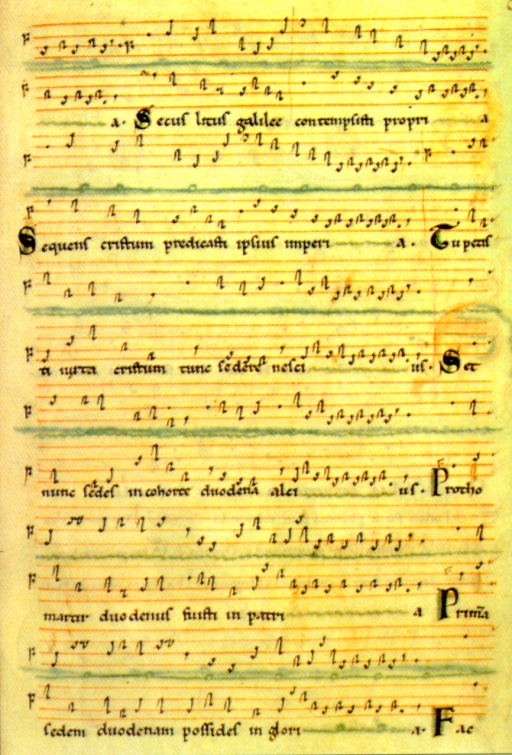 a. Secus litus galilee contempsisti propri a
Sequens cristum predicasti ipsius imperi a. Tu petis
ti iuxta cristum tunc sedere nesci us. Set
nunc sedes in cohorte duodena alci us. Protho
martir duodenus fuisti in patri a Prima
sedem duodenam possides in glori a. Fac